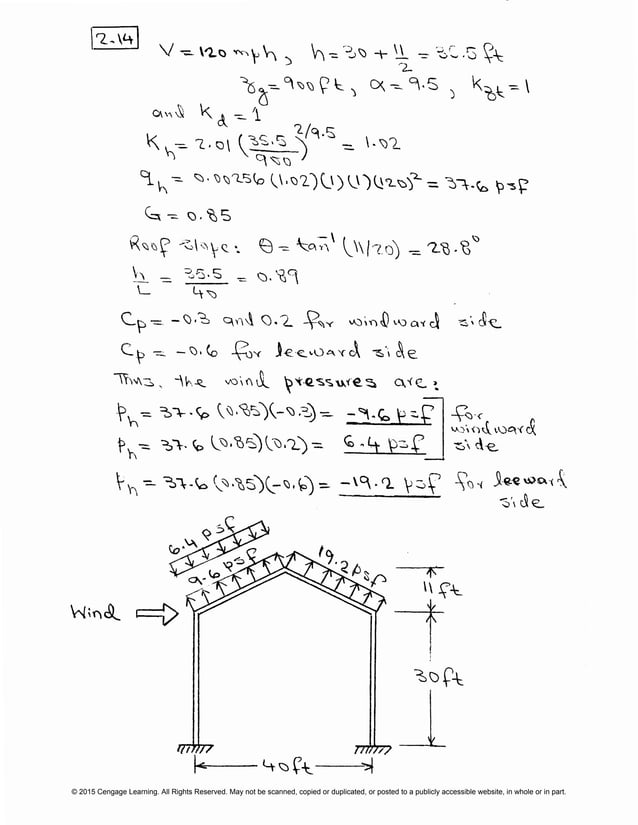 2.14
V = 120 mph, h = 30 + 11/2 = 35.5 ft
zg = 900 ft, α = 9.5, Kzt = 1
and Kd = 1
Kh = 2.01 (35.5/900)^2/9.5 = 1.02
qh = 0.00256 (1.02)(1)(1)(120)² = 37.6 psf
G = 0.85
Roof Slope: θ = tan⁻¹ (11/20) = 28.8°
h/L = 35.5/40 = 0.89
Cp = -0.3 and 0.2 for windward side
Cp = -0.6 for leeward side
Thus, the wind pressures are:
Ph = 37.6 (0.85)(-0.3) = -9.6 psf
Ph = 37.6 (0.85)(0.2) = 6.4 psf
for windward side
Ph = 37.6 (0.85)(-0.6) = -19.2 psf for leeward
side
6.4 psf
9.6 psf
19.2 psf
11 ft
Wind
30 ft
40 ft
© 2015 Cengage Learning. All Rights Reserved. May not be scanned, copied or duplicated, or posted to a publicly accessible website, in whole or in part.